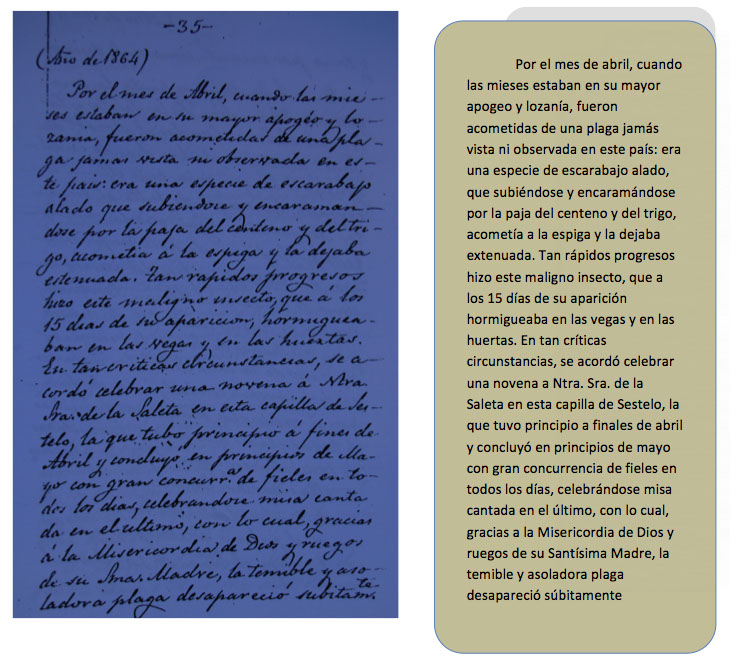 -35-
(Año de 1864)
Por el mes de Abril, cuando las mie-
ses estaban en su mayor apogéo y lo-
zania, fueron acometidas de una pla-
ga jamas vista ni observada en es-
te pais: era una especie de escarabajo
alado que subiendose y encaraman-
dose por la paja del centeno y del tri-
go, acometia á la espiga y la dejaba
estenuada. Tan rapidos progresos
hizo este maligno insecto, que á los
15 dias de su aparicion, hormiguea-
ban en las vegas y en las huertas.
En tan criticas circunstancias, se a-
cordó celebrar una novena á Ntra.
Sra. de la Saleta en esta capilla de Ses-
telo, la que tubo principio á fines de
Abril y concluyó en principios de Ma-
yo con gran concurr.ª de fieles en to-
dos los dias, celebrandose misa canta
da en el ultimo, con lo cual, gracias
á la Misericordia de Dios y ruegos
de su Sma. Madre, la temible y aso-
ladora plaga desapareció subitam.te
Por el mes de abril, cuando
las mieses estaban en su mayor
apogeo y lozanía, fueron
acometidas de una plaga jamás
vista ni observada en este país: era
una especie de escarabajo alado,
que subiéndose y encaramándose
por la paja del centeno y del trigo,
acometía a la espiga y la dejaba
extenuada. Tan rápidos progresos
hizo este maligno insecto, que a
los 15 días de su aparición
hormigueaba en las vegas y en las
huertas. En tan críticas
circunstancias, se acordó celebrar
una novena a Ntra. Sra. de la
Saleta en esta capilla de Sestelo, la
que tuvo principio a finales de abril
y concluyó en principios de mayo
con gran concurrencia de fieles en
todos los días, celebrándose misa
cantada en el último, con lo cual,
gracias a la Misericordia de Dios y
ruegos de su Santísima Madre, la
temible y asoladora plaga
desapareció súbitamente